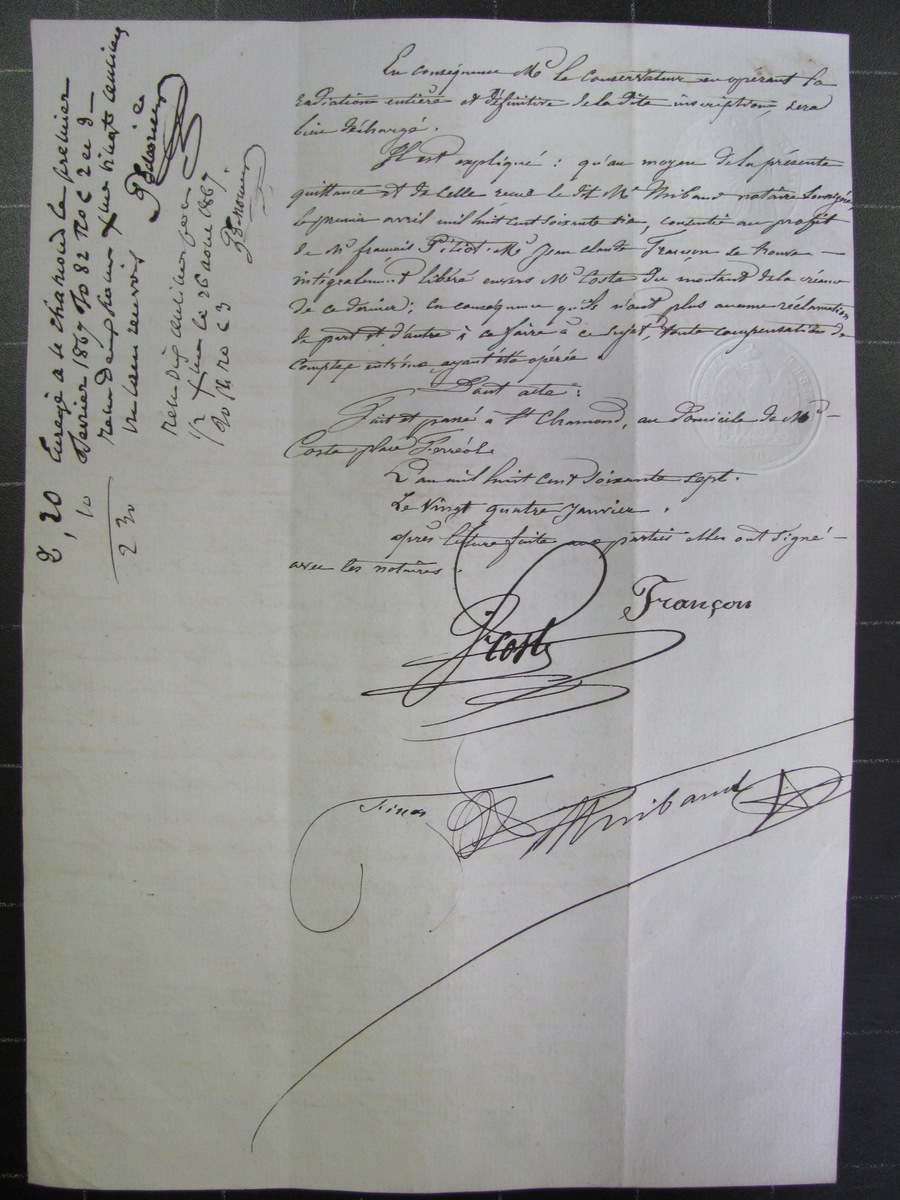 En conséquence Mr le Conservateur en opérant la
radiation entière et définitive de la dite inscription, sera
bien déchargé.
Il est expliqué : qu'au moyen de la présente
quittance et de celle reçue le dit Me Thibaud notaire soussigné
le premier avril mil huit cent soixante six, consentie au profit
de Mr français Pitiot, Mr Jean Claude Françon se trouve
intégralement libéré envers Mr Coste du montant de la créance
de ce dernier; en conséquence qu'ils n'ont plus aucune réclamation
de part et d'autre à ce faire à ce sujet, toute compensation de
Compte entr'eux ayant été opérée.
Dont acte :
Fait et passé à St Chamond, au domicile de Mr
Coste place Ferréol.
L'an mil huit cent soixante sept.
Le Vingt quatre Janvier.
après lecture faite aux parties elles ont signé
avec les notaires.
Françon
Coste
Finas
Thibaud
Enregé à St Chamond le premier
février 1867 fo 82 Ro C 2 et 3
reçu deux francs
2,20
10
2 30
reçu dix centimes pour
1/2 le 26 août 1867.
Ro C 3